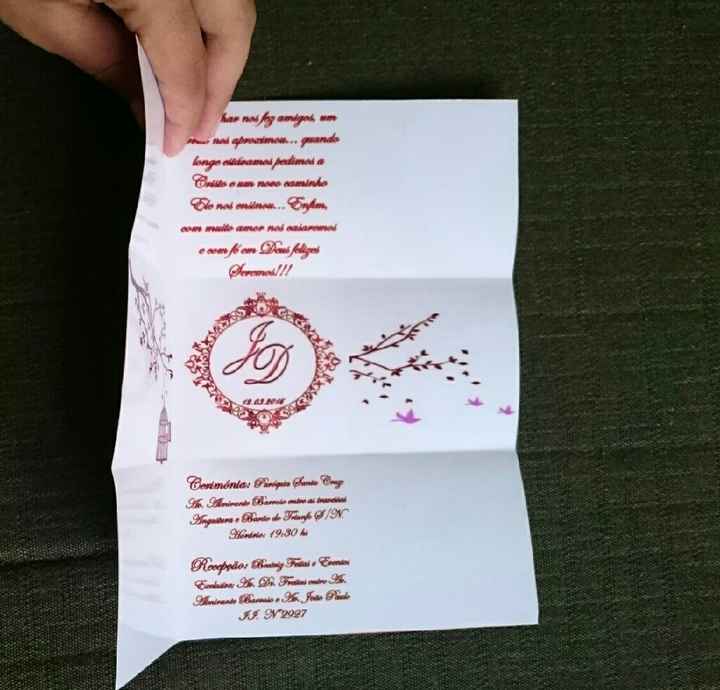 har nos fez amigos, um
nos aproximou... quando
longe estávamos pedimos a
Cristo e um novo caminho
Ele nos ensinou... Enfim,
com muito amor nos casaremos
e com fé em Deus felizes
Seremos!!!
J D
12.03.2016
Cerimônia: Paróquia Santa Cruz
Av. Almirante Barroso entre as travessas
Angustura e Barão do Triunfo S/N
Horário: 19:30 hs
Recepção: Beatriz Feitas e Eventos
Exclusive; Av. Dr. Freitas entre Av.
Almirante Barroso e Av. João Paulo
II. Nº2927